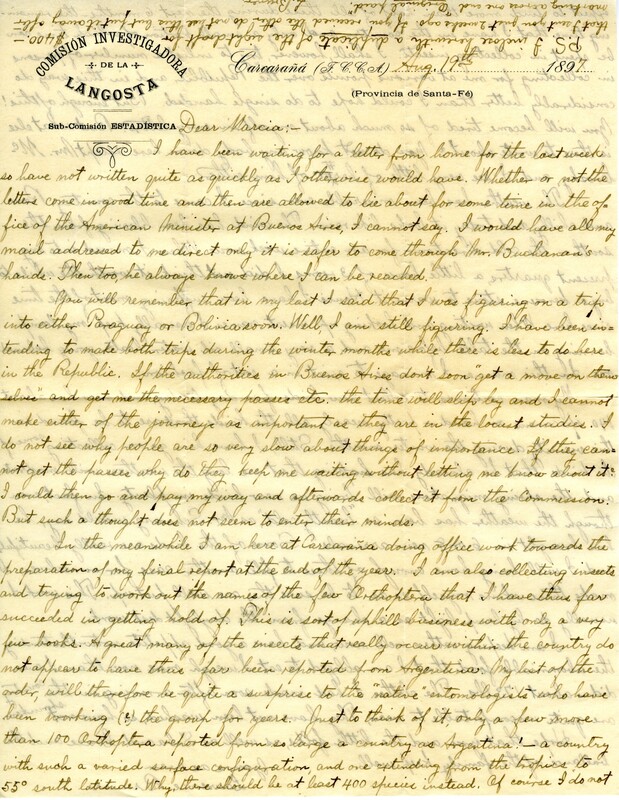 COMISIÓN INVESTIGADORA
DE LA
LANGOSTA
Sub-Comisión ESTADÍSTICA
Carcarañá (F. C. C. A.) Aug. 19th 1897
(Provincia de Santa-Fé)
Dear Marcia:-
I have been waiting for a letter from home for the last week
so have not written quite as quickly as I otherwise would have. Whether or not the
letters come in good time and then are allowed to lie about for some time in the of-
fice of the American Minister at Buenos Aires, I cannot say. I would have all my
mail addressed to me direct only it is safer to come through Mr. Buchanan's
hands. Then too, he always knows where I can be reached.
You will remember that in my last I said that I was figuring on a trip
into either Paraguay or Bolivia soon. Well, I am still figuring. I have been in-
tending to make both trips during the winter months while there is less to do here
in the Republic. If the authorities in Buenos Aires dont soon "get a move on them
selves" and get me the necessary passes etc. the time will slip by and I cannot
make either of the journeys as important as they are in the locust studies. I
do not see why people are so very slow about things of importance. If they can-
not get the passes why do they keep me waiting without letting me know about it?
I could then go and pay my way and afterwards collect it from the Commission.
But such a thought does not seem to enter their minds.
In the meanwhile I am here at Carcaraña doing office work towards the
preparation of my final report at the end of the year. I am also collecting insects
and trying to work out the names of the few Orthoptera that I have thus far
succeeded in getting hold of. This is sort of uphill business with only a very
few books. A great many of the insects that really occur within the country do
not appear to have thus far been reported from Argentina. My list of the
order, will therefore be quite a surprise to the "native" entomologists who have
been working (?) the group for years. Just to think of it, only a few more
than 100 Orthoptera reported from so large a country as Argentina! - a country
with such a varied surface configuration, and one extending from the tropics to
55° south latitude. Why, there should be at least 400 species instead. Of course I do not
P.S. I inclose herewith a duplicate of the sight draft for $400.—
that I sent you just 2 weeks ago. If you received the other do not use this but put it away after
marking across one end "Original paid".